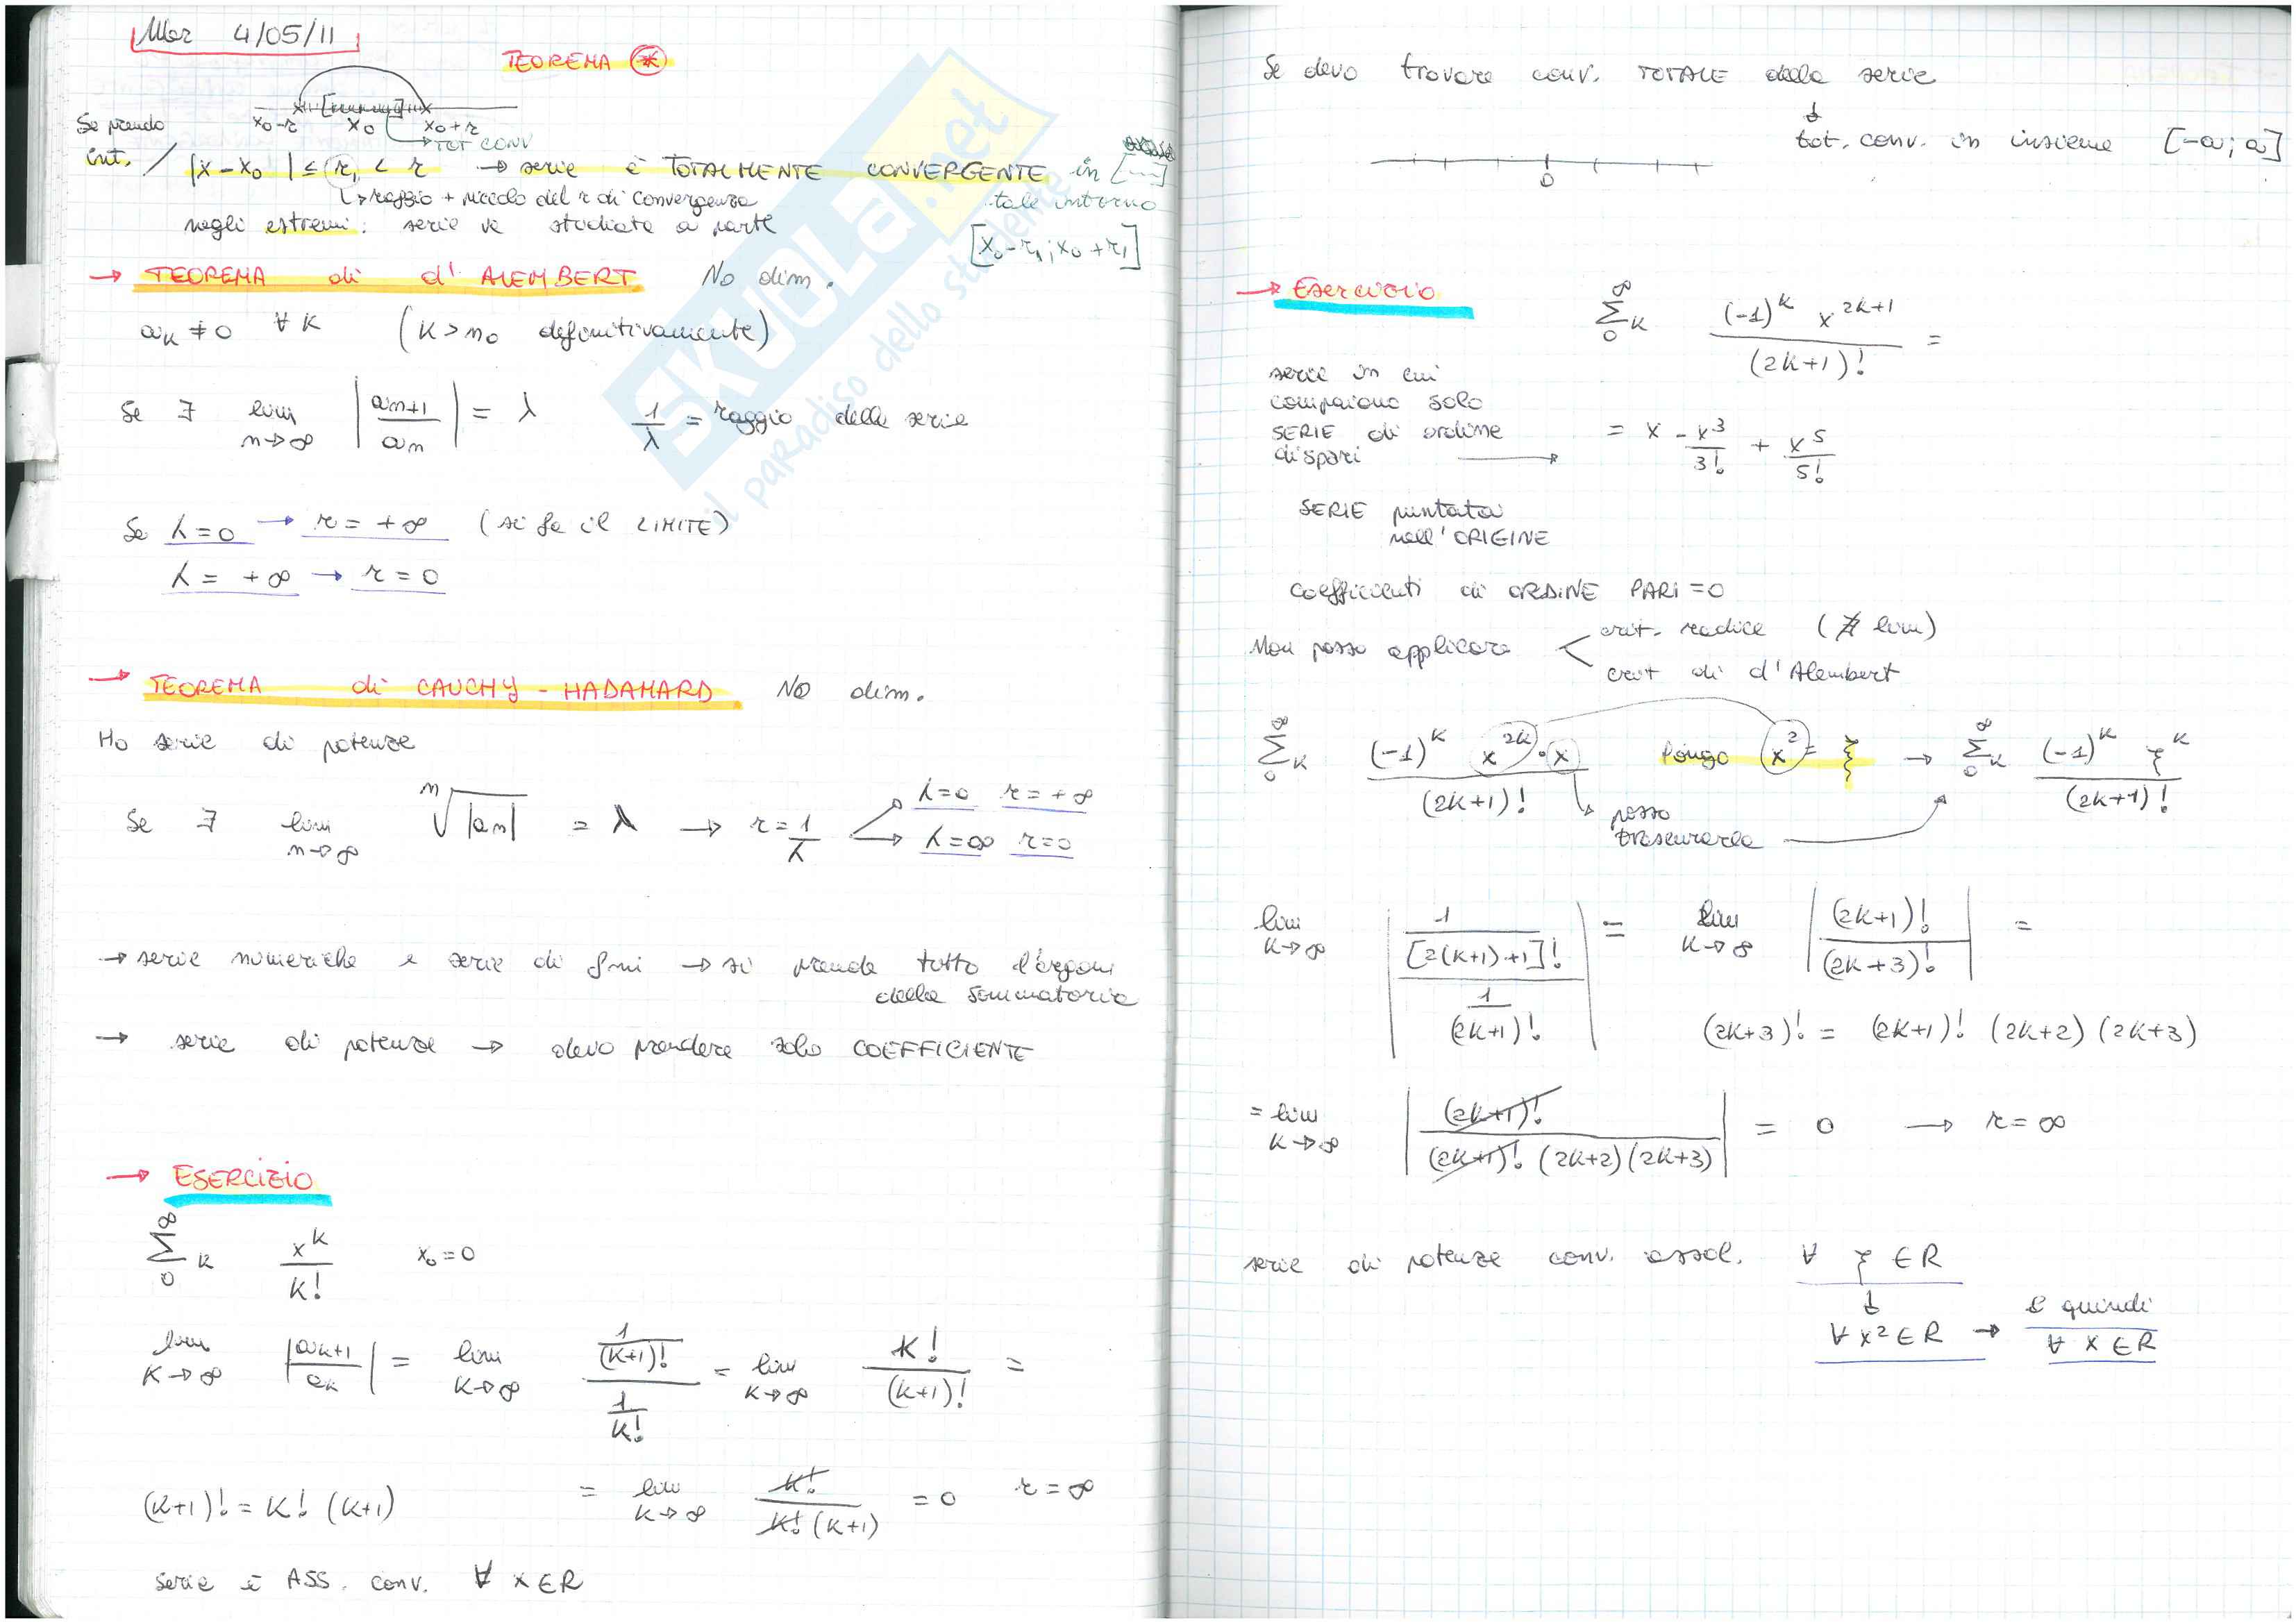 Mer 4/05/11
TEOREMA (*)
x₀-r x₀ x₀+r
→ TOT CONV
Se prendo
int. / |x-x₀| ≤ r₁ < r → serie è TOTALMENTE CONVERGENTE in [---]
↳ raggio + piccolo del r di convergenza
tale intorno
negli estremi: serie va studiata a parte
[x₀-r₁; x₀+r₁]
→ TEOREMA di d'ALEMBERT No dim.
aₖ ≠ 0 ∀ k (k > n₀ definitivamente)
Se ∃ lim n→∞ |aₙ₊₁/aₙ| = λ 1/λ = raggio della serie
Se λ=0 → r=+∞ (si fa il LIMITE)
λ=+∞ → r=0
→ TEOREMA di CAUCHY-HADAMARD NO dim.
Ho serie di potenze
Se ∃ lim n→∞ ⁿ√|aₙ| = λ → r=1/λ
λ=0 r=+∞
λ=∞ r=0
→ serie numeriche e serie di fni → si prende tutto l'argom
della sommatoria
→ serie di potenze → devo prendere solo COEFFICIENTE
→ ESERCIZIO
∑₀^∞ k x^k/k! x₀=0
lim k→∞ |aₖ₊₁/aₖ| = lim k→∞ (1/(k+1)!)/(1/k!) = lim k→∞ k!/(k+1)! =
(k+1)! = k! (k+1) = lim k→∞ k!/(k!(k+1)) = 0 r=∞
serie è ASS. conv. ∀ x∈R
Se devo trovare conv. TOTALE della serie
↓
tot. conv. in insieme [-a; a]
0
→ Esercizio ∑₀^∞ k (-1)^k x^(2k+1)/(2k+1)! =
serie in cui
compaiono solo
SERIE di ordine
dispari → = x - x³/3! + x⁵/5!
SERIE puntata
nell'ORIGINE
coefficienti di ORDINE PARI=0
Non posso applicare
crit. radice (∄ lim)
crit di d'Alembert
∑₀^∞ k (-1)^k x^(2k)·x/(2k+1)! Pongo x²=ξ → ∑₀^∞ k (-1)^k ξ^k/(2k+1)!
posso
trascurarla
lim k→∞ |(1/[2(k+1)+1]!)/(1/(2k+1)!)| = lim k→∞ |(2k+1)!/(2k+3)!| =
(2k+3)! = (2k+1)! (2k+2) (2k+3)
= lim k→∞ |(2k+1)!/((2k+1)! (2k+2)(2k+3))| = 0 → r=∞
serie di potenze conv. assol. ∀ ξ ∈R
↓
∀ x²∈R → e quindi
∀ x∈R
SKUOLA.net
il paradiso dello studente